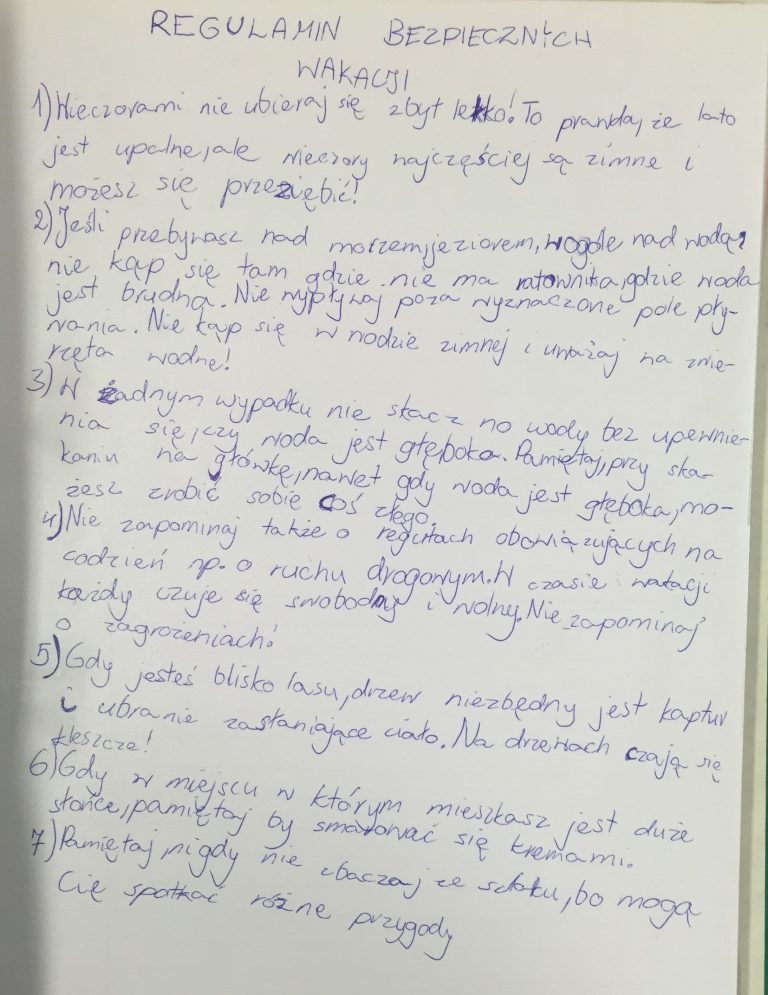 REGULAMIN BEZPIECZNYCH
WAKACJI
1) Wieczorami nie ubieraj się zbyt lekko! To prawda, że lato
jest upalne, ale wieczory najczęściej są zimne i
możesz się przeziębić!
2) Jeśli przebywasz nad morzem, jeziorem, wogóle nad wodą,
nie kąp się tam gdzie nie ma ratownika, gdzie woda
jest brudna. Nie wypływaj poza wyznaczone pole pły-
wania. Nie kąp się w wodzie zimnej i uważaj na zwie-
rzęta wodne!
3) W żadnym wypadku nie skacz no wody bez upewnie-
nia się, czy woda jest głęboka. Pamiętaj, przy ska-
kaniu na główkę, nawet gdy woda jest głęboka, mo-
żesz zrobić sobie coś złego.
4) Nie zapominaj także o regułach obowiązujących na
codzień np. o ruchu drogowym. W czasie wakacji
każdy czuje się swobodny i wolny. Nie zapominaj
o zagrożeniach!
5) Gdy jesteś blisko lasu, drzew niezbędny jest kaptur
i ubranie zasłaniające ciało. Na drzewach czają się
kleszcze!
6) Gdy w miejscu w którym mieszkasz jest duże
słońce, pamiętaj by smarować się kremami.
7) Pamiętaj, nigdy nie zbaczaj ze szlaku, bo mogą
Cię spotkać różne przygody